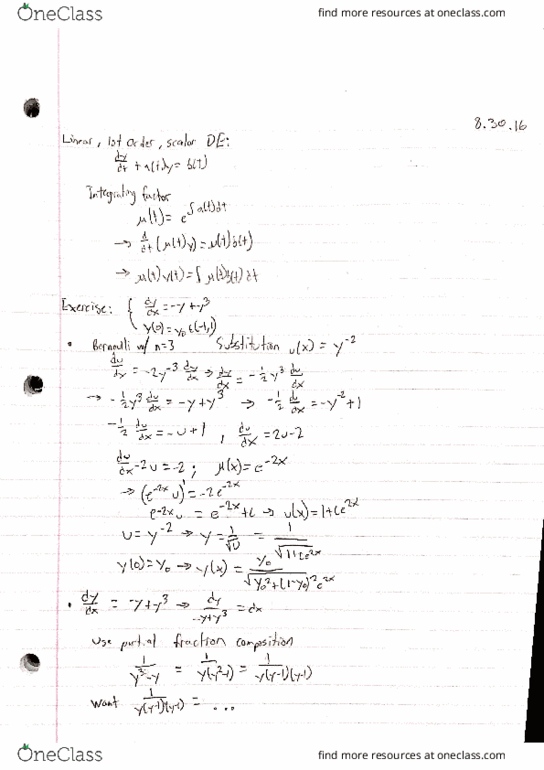 OneClass
find more resources at oneclass.com
8.30.16
Linear, 1st order, scalar DE:
dy/dt + a(t)y = b(t)
Integrating factor
μ(t) = e^∫a(t)dt
→ d/dt (μ(t)y) = μ(t)b(t)
→ μ(t)y(t) = ∫ μ(t)b(t) dt
Exercise: { dy/dx = -y + y^3
y(0) = y₀ ∈ (-1,1)
• Bernoulli w/ n=3 Substitution u(x) = y^-2
du/dx = -2y^-3 dy/dx → dy/dx = -1/2 y^3 du/dx
→ -1/2 y^3 du/dx = -y + y^3 → -1/2 du/dx = -y^-2 + 1
-1/2 du/dx = -u + 1 , du/dx = 2u-2
du/dx - 2u = -2 ; μ(x) = e^-2x
→ (e^-2x u)' = -2e^-2x
e^-2x u = e^-2x + C → u(x) = 1 + Ce^2x
u = y^-2 → y = 1/√u = 1/√(1+Ce^2x)
y(0) = y₀ → y(x) = y₀/√(y₀^2 + (1-y₀)^2 e^2x)
• dy/dx = -y + y^3 → dy/(-y+y^3) = dx
Use partial fraction composition
1/(y^3-y) = 1/(y(y^2-1)) = 1/(y(y-1)(y-1))
Want 1/(y(y-1)(y-1)) = ...
OneClass
find more resources at oneclass.com